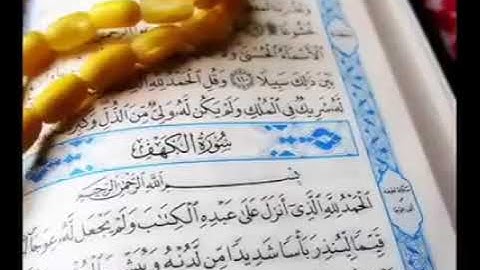 الْأَسْمَاءُ الْحُسْنَىٰ وَلَا
بَيْنَ ذَٰلِكَ سَبِيلًا ۝١١٠ وَقُلِ الْحَمْدُ لِلَّهِ
لَّهُ شَرِيكٌ فِي الْمُلْكِ وَلَمْ يَكُن لَّهُ وَلِيٌّ مِّنَ الذُّلِّ وَكَبِّرْ
سُورَةُ الْكَهْفِ
بِسْمِ اللَّهِ الرَّحْمَٰنِ الرَّحِيمِ
الْحَمْدُ لِلَّهِ الَّذِي أَنزَلَ عَلَىٰ عَبْدِهِ الْكِتَابَ وَلَمْ يَجْعَل لَّهُ عِوَجًا
قَيِّمًا لِّيُنذِرَ بَأْسًا شَدِيدًا مِّن لَّدُنْهُ وَيُبَشِّرَ